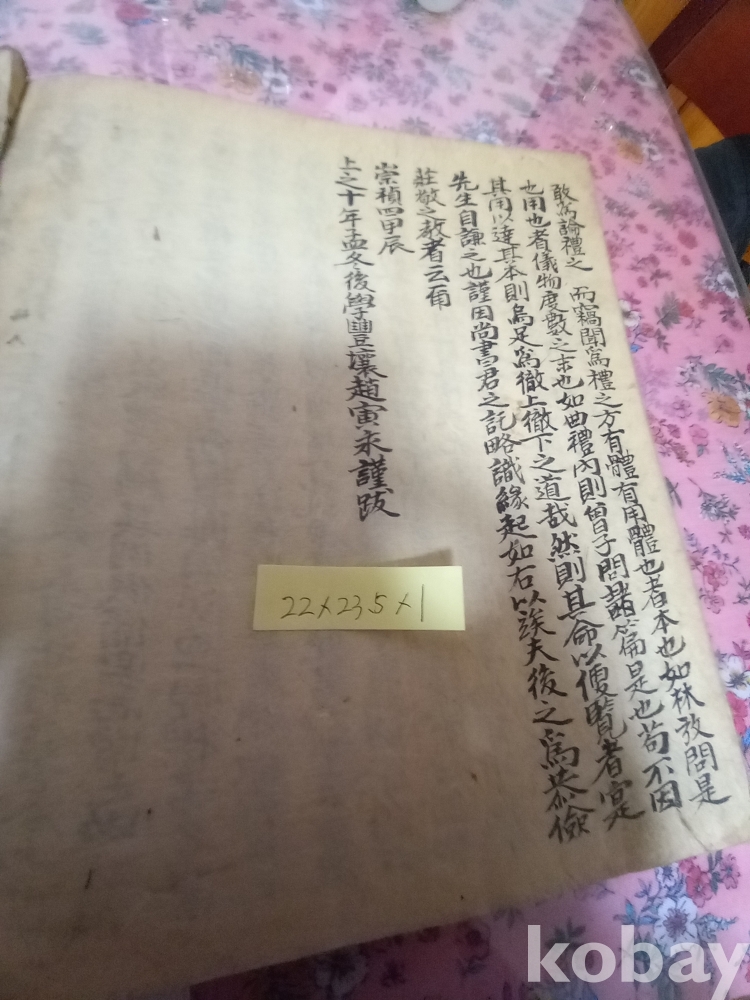 敢爲論禮之 而竊聞爲禮之方有體有用體也者本也如林放問是
也用也者儀物度數之末也如曲禮內則曾子問諸篇是也苟不因
其用以達其本則烏足爲徹上徹下之道哉然則其命以便覽者寔
先生自謙之也謹因尚書君之託略識緣起如右以竢夫後之爲恭儉
莊敬之敎者云爾
崇禎四甲辰
上之十年孟冬後學豐壤趙寅永謹跋
22×23.5×1
kobay